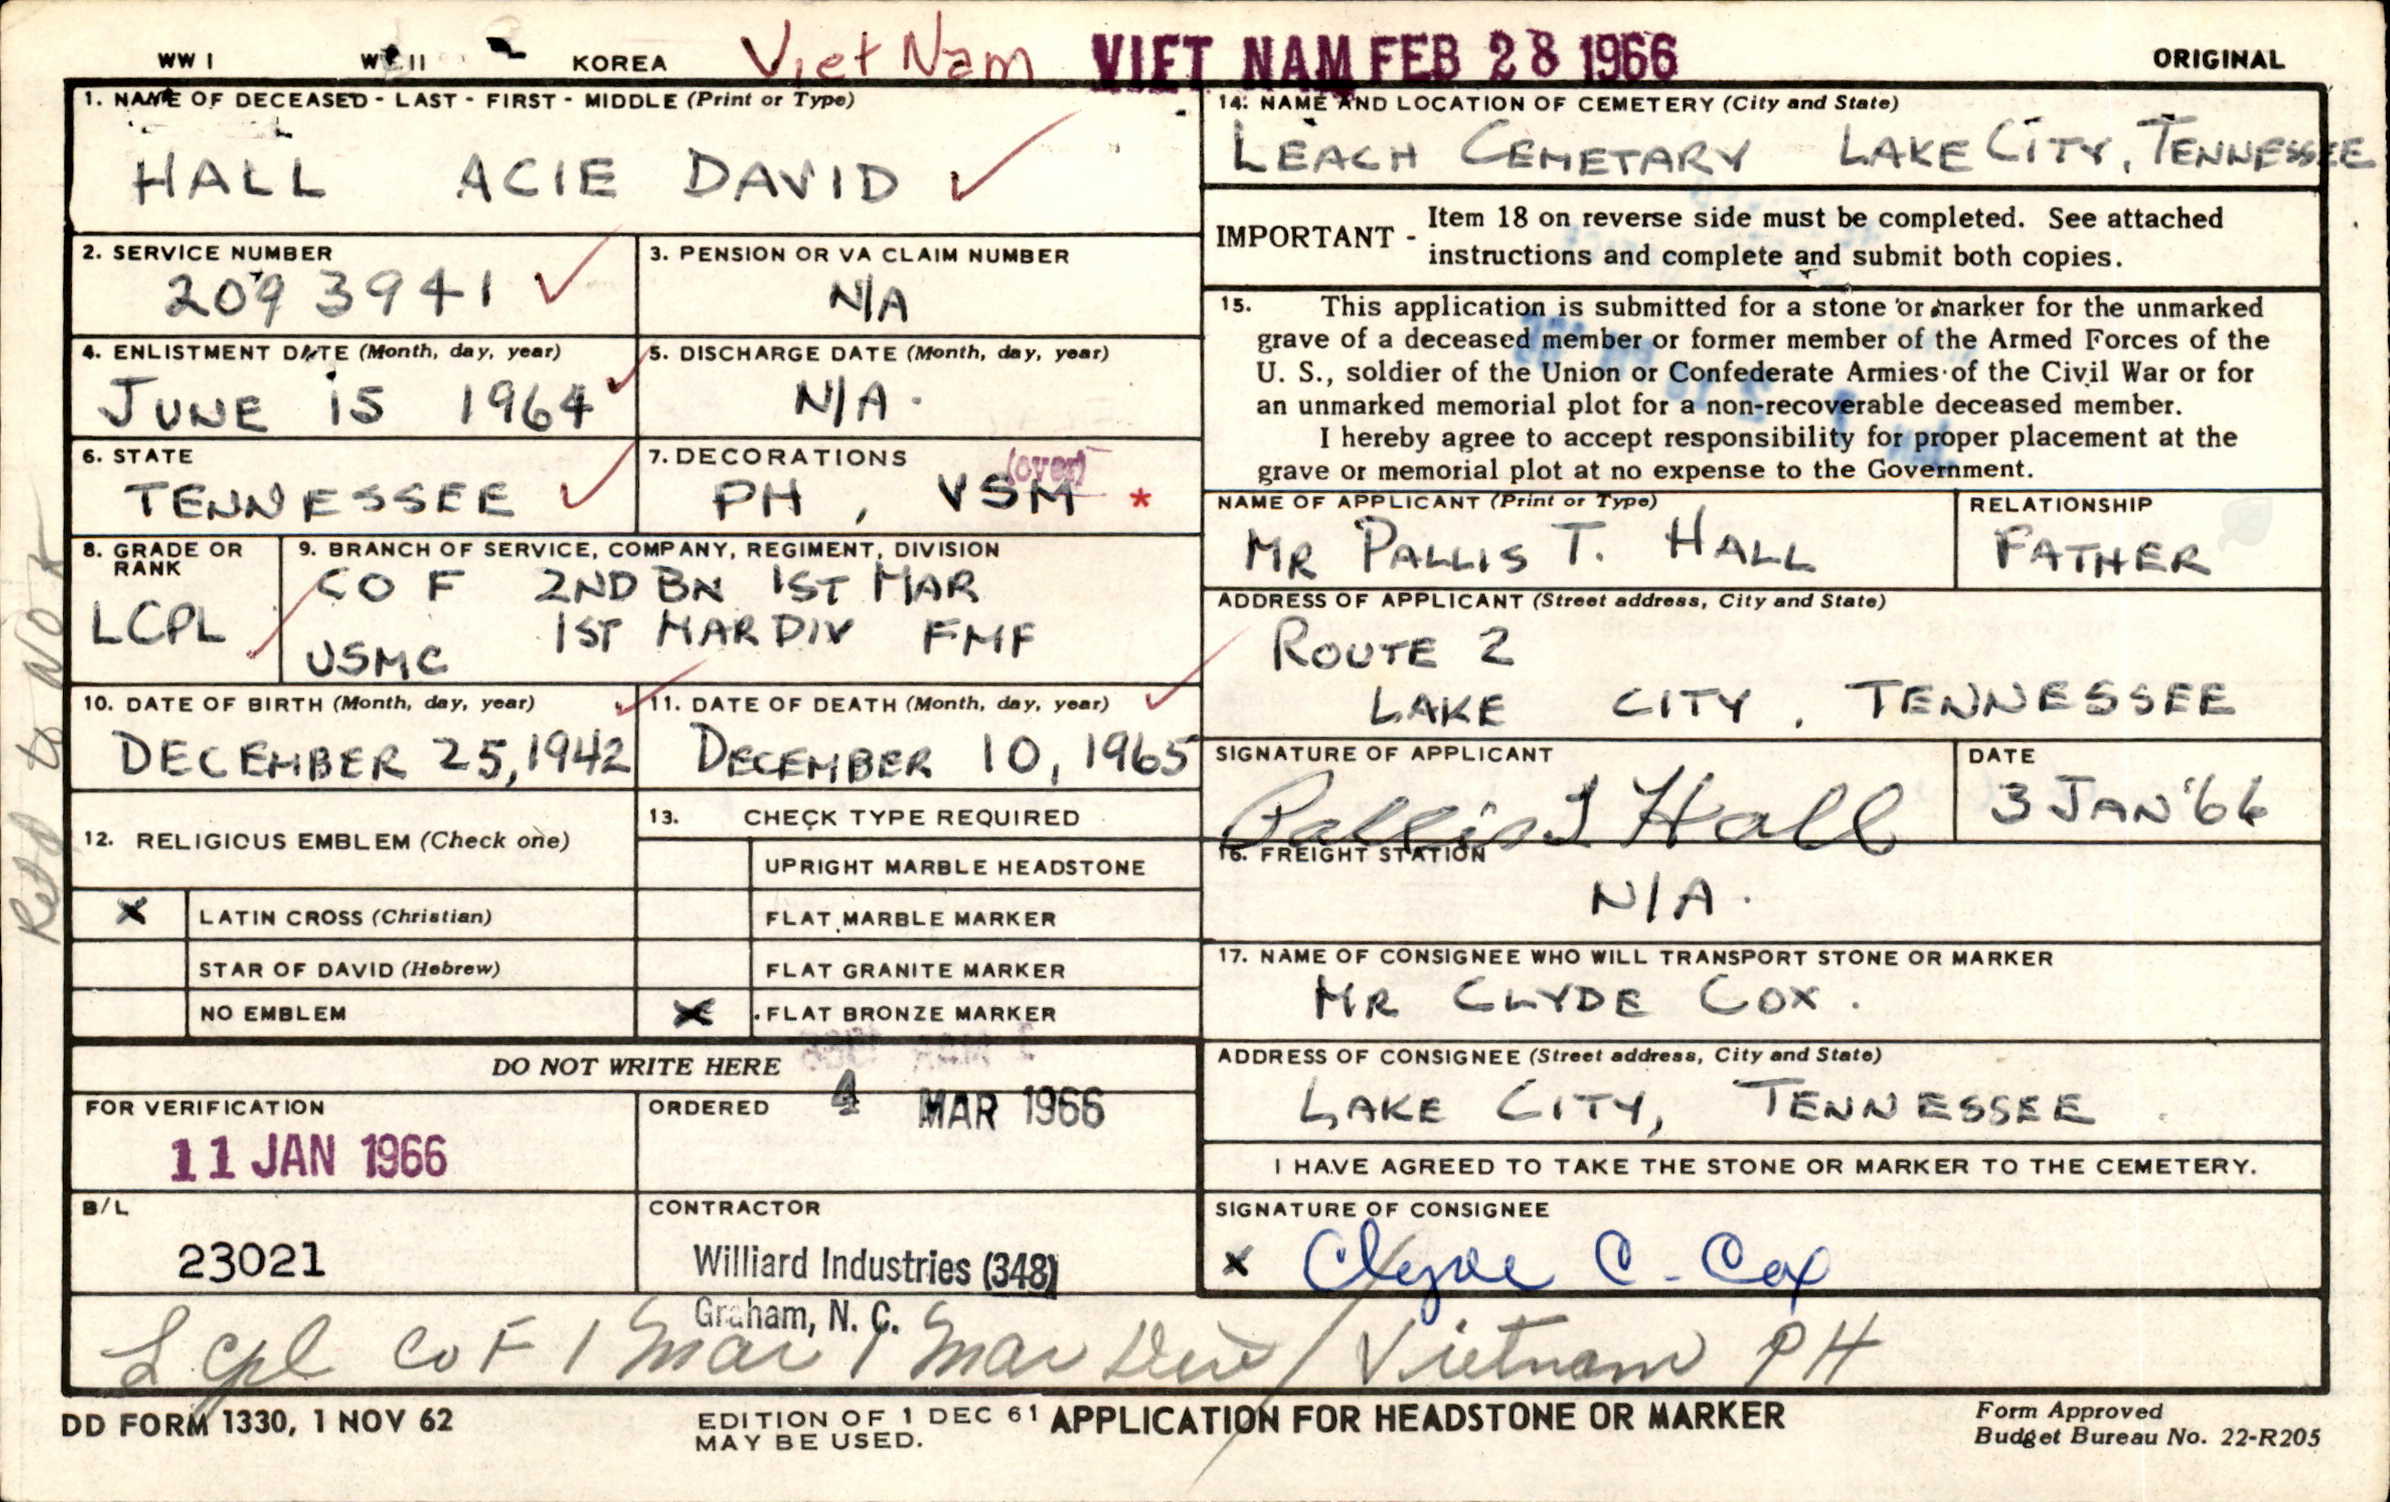 WW I WW II KOREA Viet Nam VIET NAM FEB 28 1966 ORIGINAL
1. NAME OF DECEASED - LAST - FIRST - MIDDLE (Print or Type)
HALL ACIE DAVID ✓
2. SERVICE NUMBER
2093941 ✓
3. PENSION OR VA CLAIM NUMBER
N/A
4. ENLISTMENT DATE (Month, day, year)
JUNE 15 1964 ✓
5. DISCHARGE DATE (Month, day, year)
N/A.
6. STATE
TENNESSEE ✓
7. DECORATIONS (over)
PH, VSM *
8. GRADE OR
RANK
LCPL ✓
9. BRANCH OF SERVICE, COMPANY, REGIMENT, DIVISION
CO F 2ND BN 1ST MAR
1ST MAR DIV FMF
USMC
10. DATE OF BIRTH (Month, day, year) ✓
DECEMBER 25, 1942
11. DATE OF DEATH (Month, day, year) ✓
DECEMBER 10, 1965
12. RELIGIOUS EMBLEM (Check one)
X LATIN CROSS (Christian)
STAR OF DAVID (Hebrew)
NO EMBLEM
13. CHECK TYPE REQUIRED
UPRIGHT MARBLE HEADSTONE
FLAT MARBLE MARKER
FLAT GRANITE MARKER
X FLAT BRONZE MARKER
DO NOT WRITE HERE
FOR VERIFICATION
11 JAN 1966
ORDERED 4 MAR 1966
B/L
23021
CONTRACTOR
Williard Industries (348)
Graham, N. C.
14. NAME AND LOCATION OF CEMETERY (City and State)
LEACH CEMETARY LAKE CITY, TENNESSEE
IMPORTANT - Item 18 on reverse side must be completed. See attached
instructions and complete and submit both copies.
15. This application is submitted for a stone or marker for the unmarked
grave of a deceased member or former member of the Armed Forces of the
U. S., soldier of the Union or Confederate Armies of the Civil War or for
an unmarked memorial plot for a non-recoverable deceased member.
I hereby agree to accept responsibility for proper placement at the
grave or memorial plot at no expense to the Government.
NAME OF APPLICANT (Print or Type)
MR PALLIS T. HALL
RELATIONSHIP
FATHER
ADDRESS OF APPLICANT (Street address, City and State)
ROUTE 2
LAKE CITY, TENNESSEE
SIGNATURE OF APPLICANT
Pallis T Hall
DATE
3 JAN '66
16. FREIGHT STATION
N/A.
17. NAME OF CONSIGNEE WHO WILL TRANSPORT STONE OR MARKER
MR CLYDE COX.
ADDRESS OF CONSIGNEE (Street address, City and State)
LAKE CITY, TENNESSEE
I HAVE AGREED TO TAKE THE STONE OR MARKER TO THE CEMETERY.
SIGNATURE OF CONSIGNEE
X Clyde C. Cox
L Cpl Co F 1 Mar 1 Mar Div / Vietnam PH
DD FORM 1330, 1 NOV 62
EDITION OF 1 DEC 61
MAY BE USED.
APPLICATION FOR HEADSTONE OR MARKER
Form Approved
Budget Bureau No. 22-R205
Retd to NOK